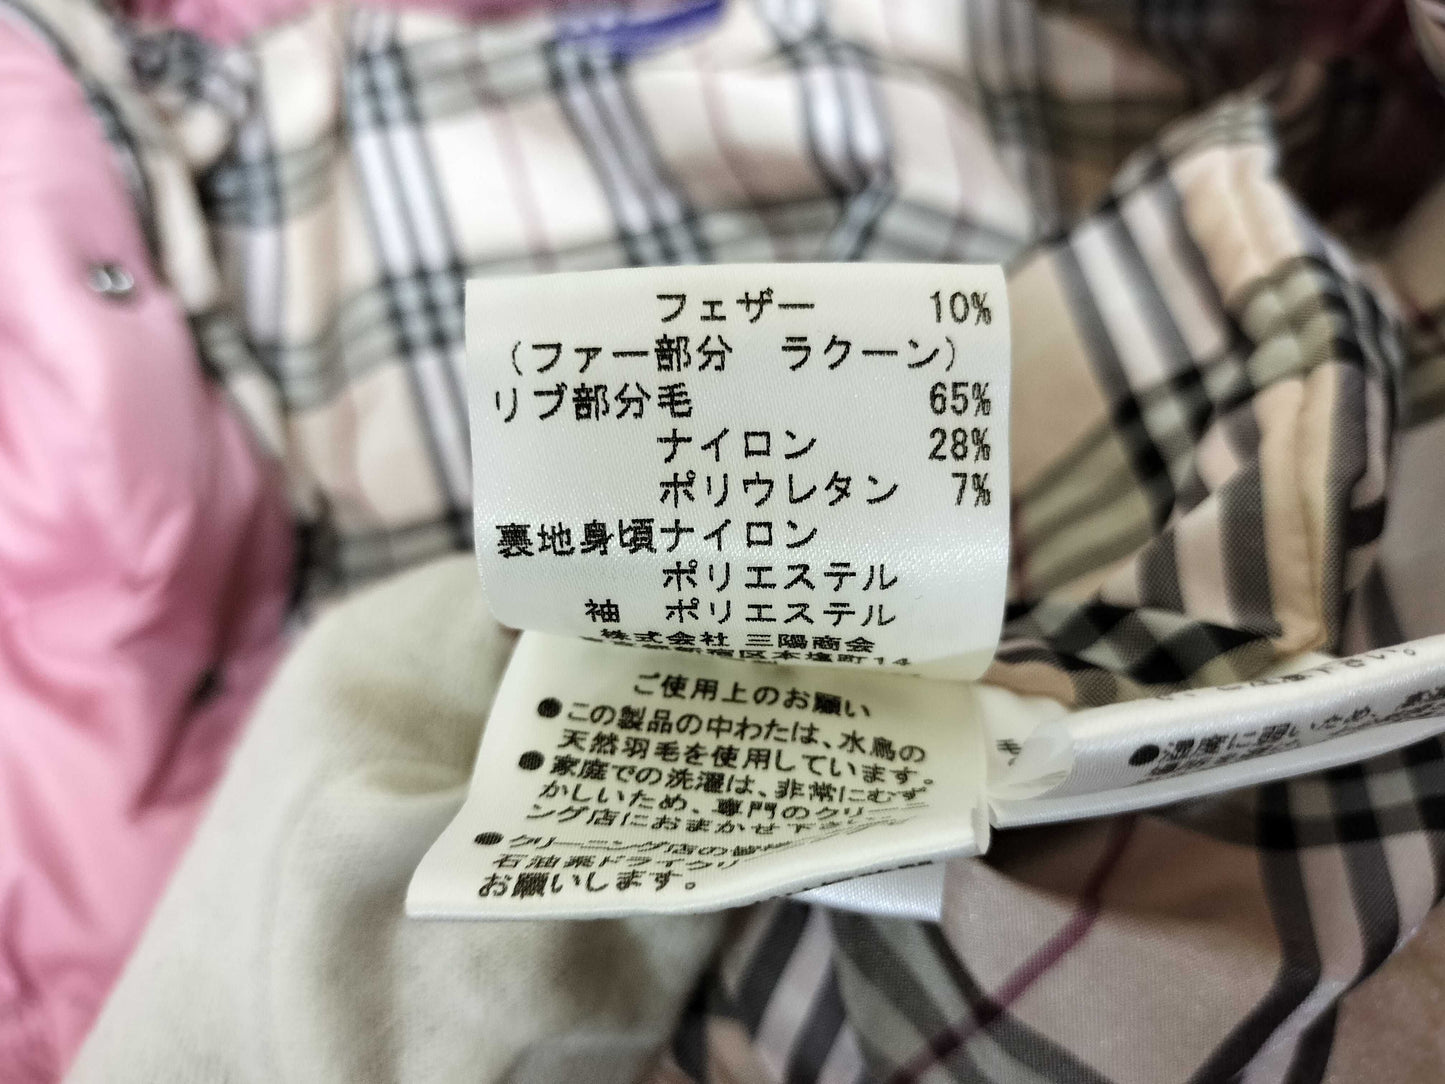 フェザー 10%
(ファー部分 ラクーン)
リブ部分毛 65%
ナイロン 28%
ポリウレタン 7%
裏地身頃ナイロン
ポリエステル
袖 ポリエステル
株式会社 三陽商会
ご使用上のお願い
●この製品の中わたは、水鳥の
天然羽毛を使用しています。
●家庭での洗濯は、非常にむず
かしいため、専門のクリー
ング店におまかせ下さい
●クリーニング店の皆様
石油系ドライクリ
お願いします。
●湿度に弱いため、